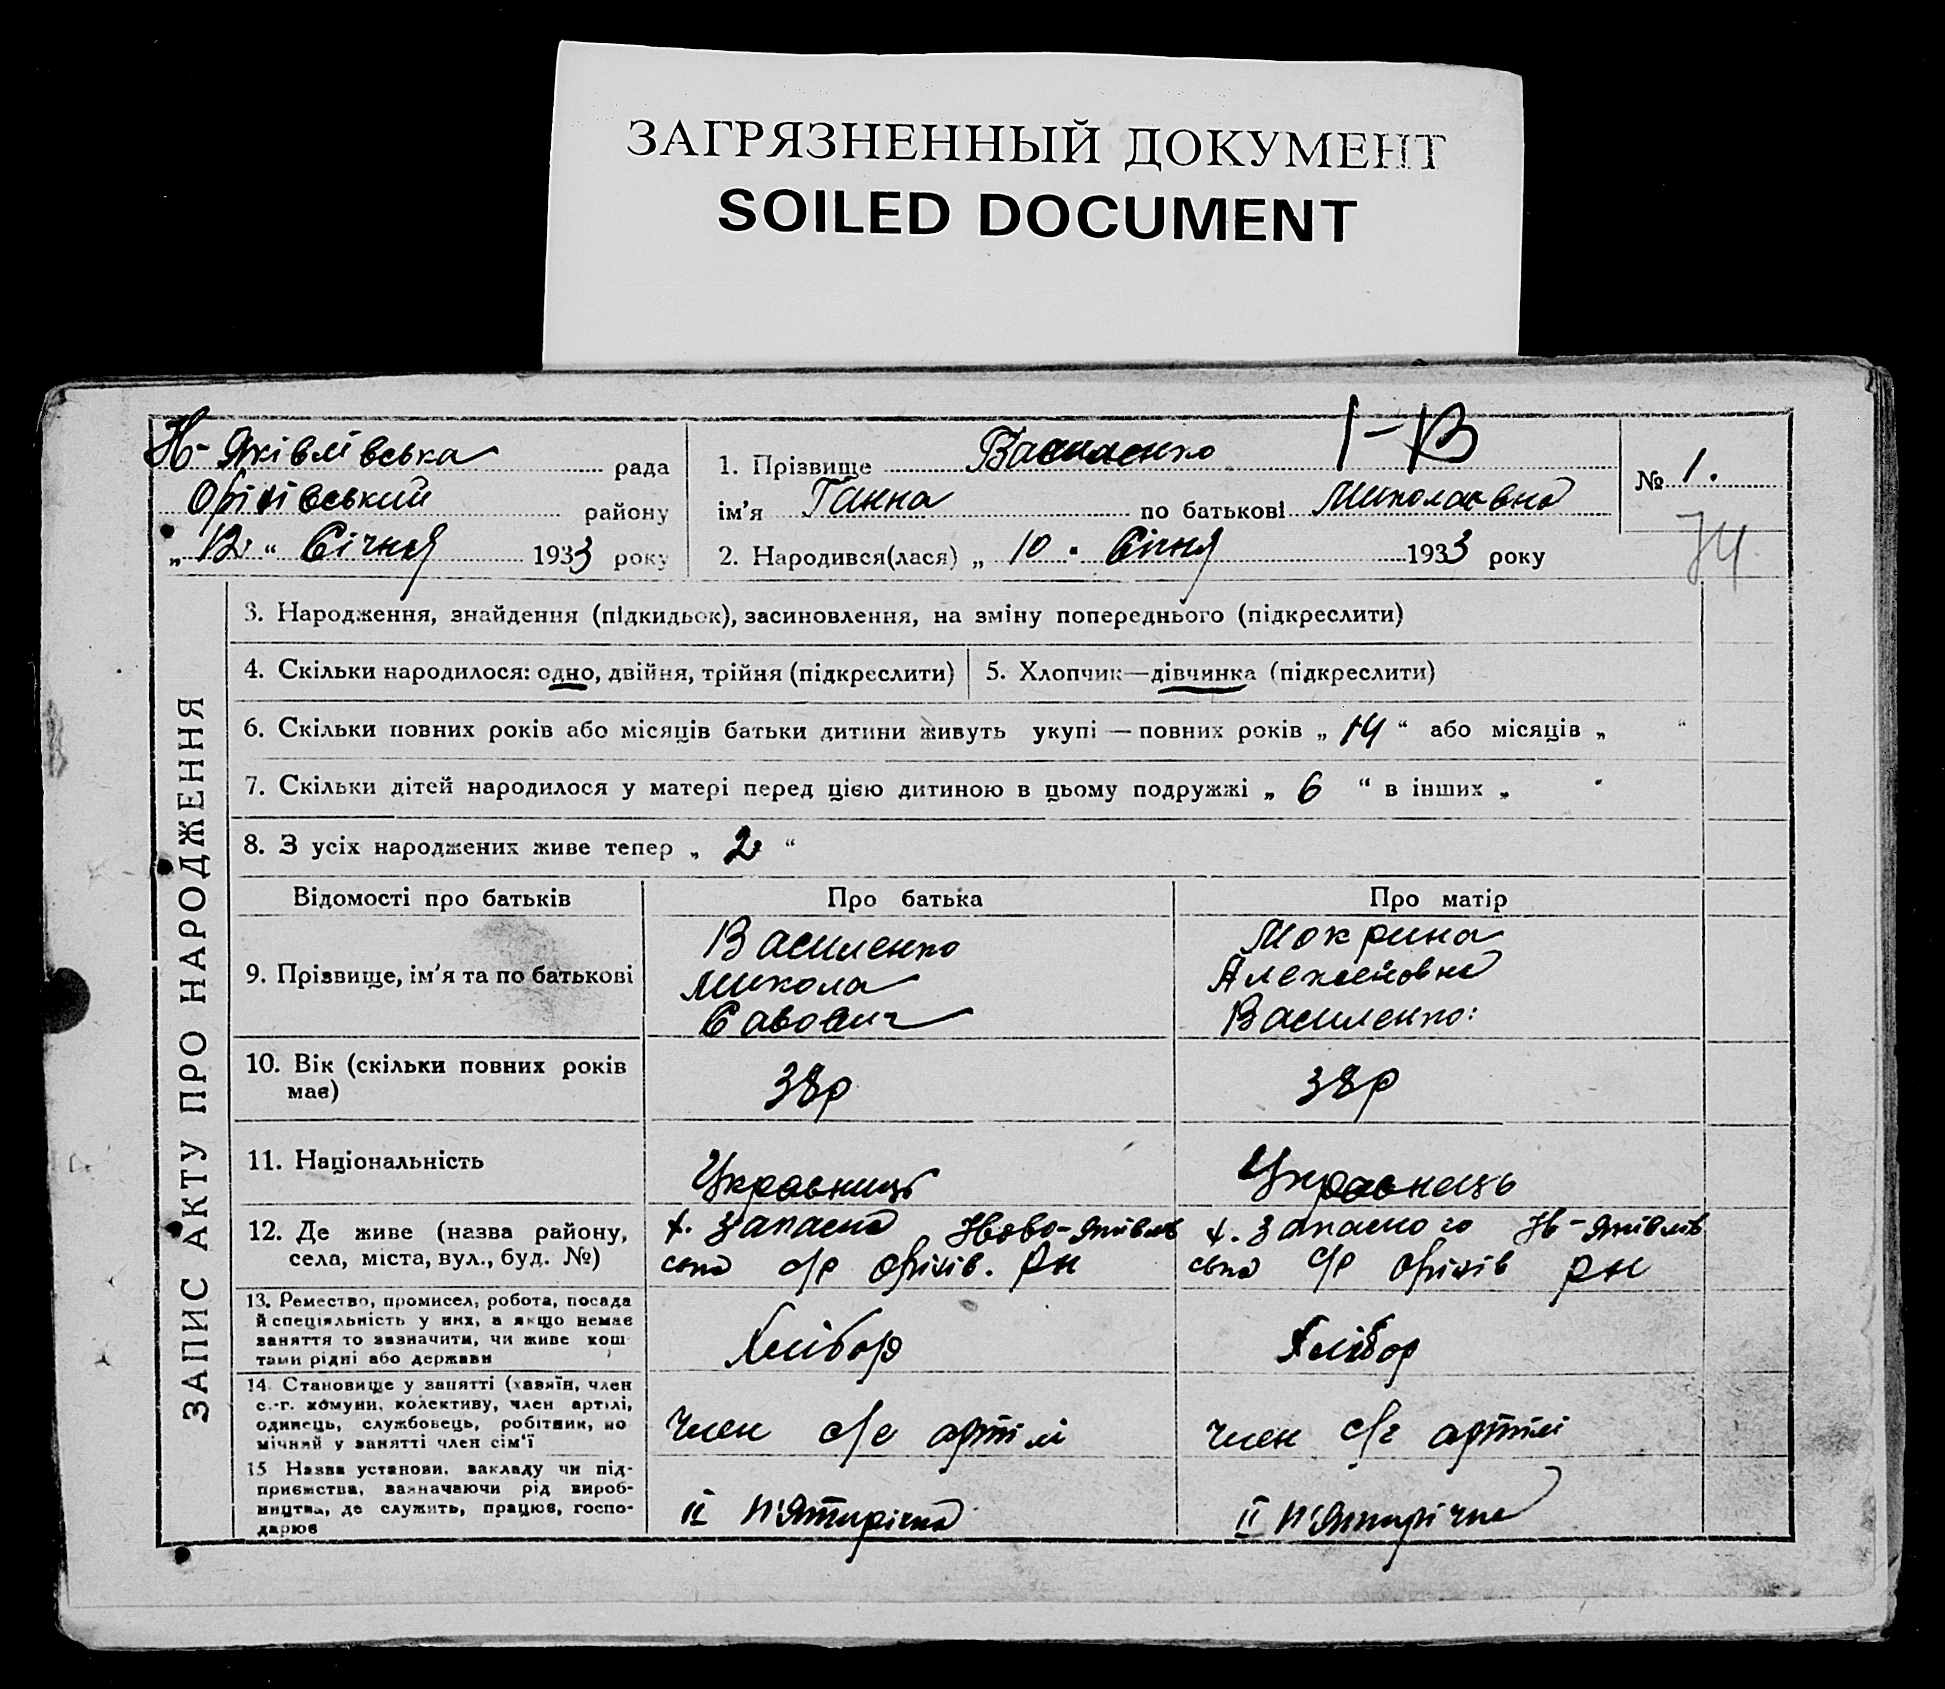 ЗАГРЯЗНЕННЫЙ ДОКУМЕНТ
SOILED DOCUMENT
Н-Яківлівська рада
Оріхівський району
„12“ Січня 1933 року
1. Прізвище Василенко 1-В
ім'я Ганна по батькові Миколаєвна
2. Народився(лася) „10" Січня 1933 року
№ 1.
74
ЗАПИС АКТУ ПРО НАРОДЖЕННЯ
3. Народження, знайдення (підкидьок), засиновлення, на зміну попереднього (підкреслити)
4. Скільки народилося: одно, двійня, трійня (підкреслити)
5. Хлопчик—дівчинка (підкреслити)
6. Скільки повних років або місяців батьки дитини живуть укупі — повних років „14“ або місяців „ “
7. Скільки дітей народилося у матері перед цією дитиною в цьому подружжі „6“ в інших „ "
8. З усіх народжених живе тепер „2“
Відомості про батьків
Про батька
Про матір
9. Прізвище, ім'я та по батькові
Василенко
Микола
Савович
Мокрина
Алексейовна
Василенко:
10. Вік (скільки повних років
має)
38р
38р
11. Національність
Украєниць
Украєнець
12. Де живе (назва району,
села, міста, вул., буд. №)
х. Запасна Ново-Яківлів
ська с/р Оріхів. рн
х. Запасного Н-Яківлів
ська с/р Оріхів рн
13. Ремество, промисел, робота, посада
й спеціяльність у них, а якщо немає
заняття то зазначити, чи живе кош
тами рідні або держави
Хлібор
Хлібор
14. Становище у занятті (хазяїн, член
с.-г. комуни, колективу, член артілі,
одинець, службовець, робітник, по
мічний у занятті член сім'ї
член с/г артілі
член с/г артілі
15 Назва установи, закладу чи під-
приємства, зазначаючи рід вироб-
ництва, де служить, працює, госпо-
дарює
II п'ятирічка
II п'ятирічка